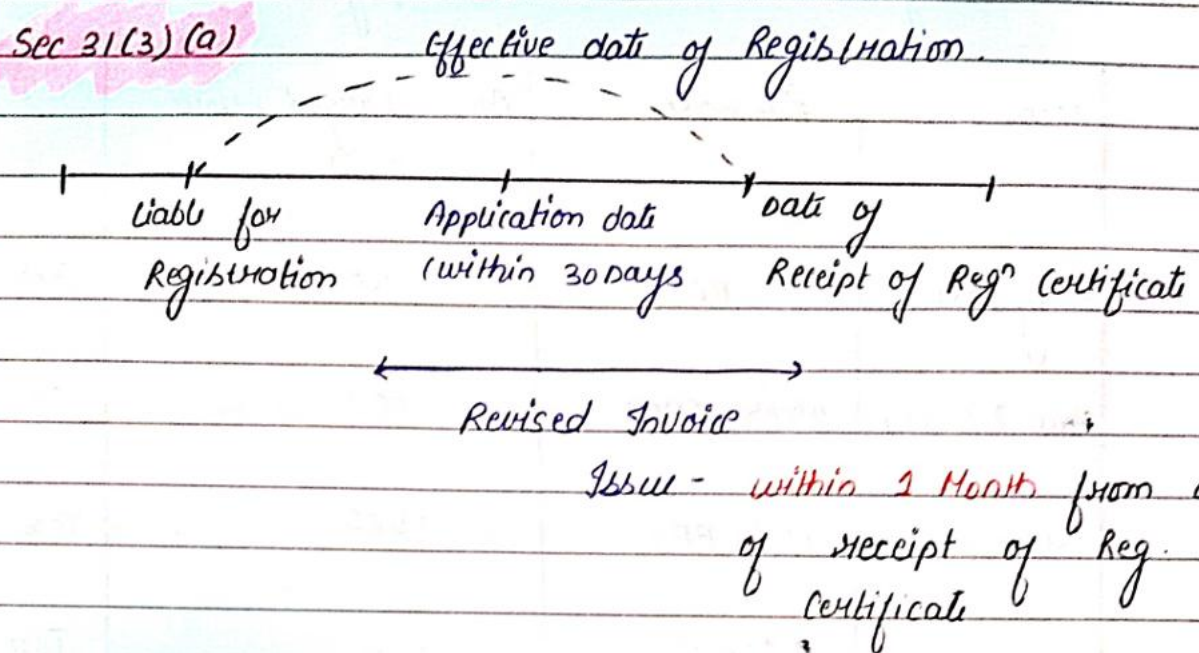 Sec 31(3)(a) Effective date of Registration.
Liable for Registration
Application date (within 30 Days
Date of Receipt of Regn Certificate
Revised Invoice
Issue - within 1 Month from
of receipt of Reg.
Certificate